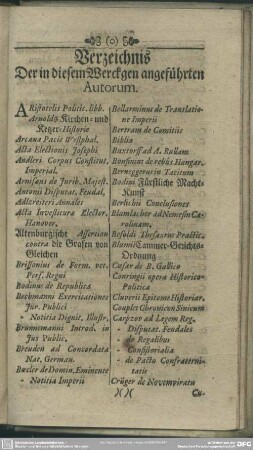 (o)
Verzeichnis
Der in diesem Werckgen angeführten
Autorum.
ARistotelis Politic. libb.
Arnolds Kirchen- und
Ketzer-Historie
Arcana Pacis Westphal.
Acta Electionis Josephi
Andleri Corpus Constitut.
Imperial.
Arnisæus de Jurib. Majest.
Antonii Disputat. Feudal.
Adlzreiteri Annales
Acta Investitura Elector.
Hanover.
Altenburgischt Assertion
contra die Grafen von
Gleichen
Brissonius de Form. vet.
Pers. Regni
Bodinus de Republica
Boehmanni Exercitationes
Jur. Publici
- Notitia Dignit. Illustr.
Brunnemanni Introd. in
Jus Public.
Breuden ad Concordata
Nat. German.
Bœcler de Domin. Eminente
- Notitia Imperii
Bellarminus de Translatio-
ne Imperii
Bertram de Comitiis
Biblia
Buxtorff ad A. Bullam
Bonfinius de rebus Hungar.
Berneggerus in Tacitum
Bodini Fürstliche Macht-
Kunst
Berlichii Conclusiones
Blumlacher ad Nemesin Ca-
rolinam.
Besoldi Thesaurus Practic.
Blumii Cammer-Gerichts-
Ordnung
Cæsar de B. Gallico
Conringii opera Historico-
Politica
Cluverii Epitome Historiar.
Couplet Chronicon Sinicum
Carpzov ad Legem Reg.
- Disputat. Feudales
- de Regalibus
- Consistorialia
- de Pacto Confraterni-
tatis
Crüger de Novemviratu
)( )(
Cu-